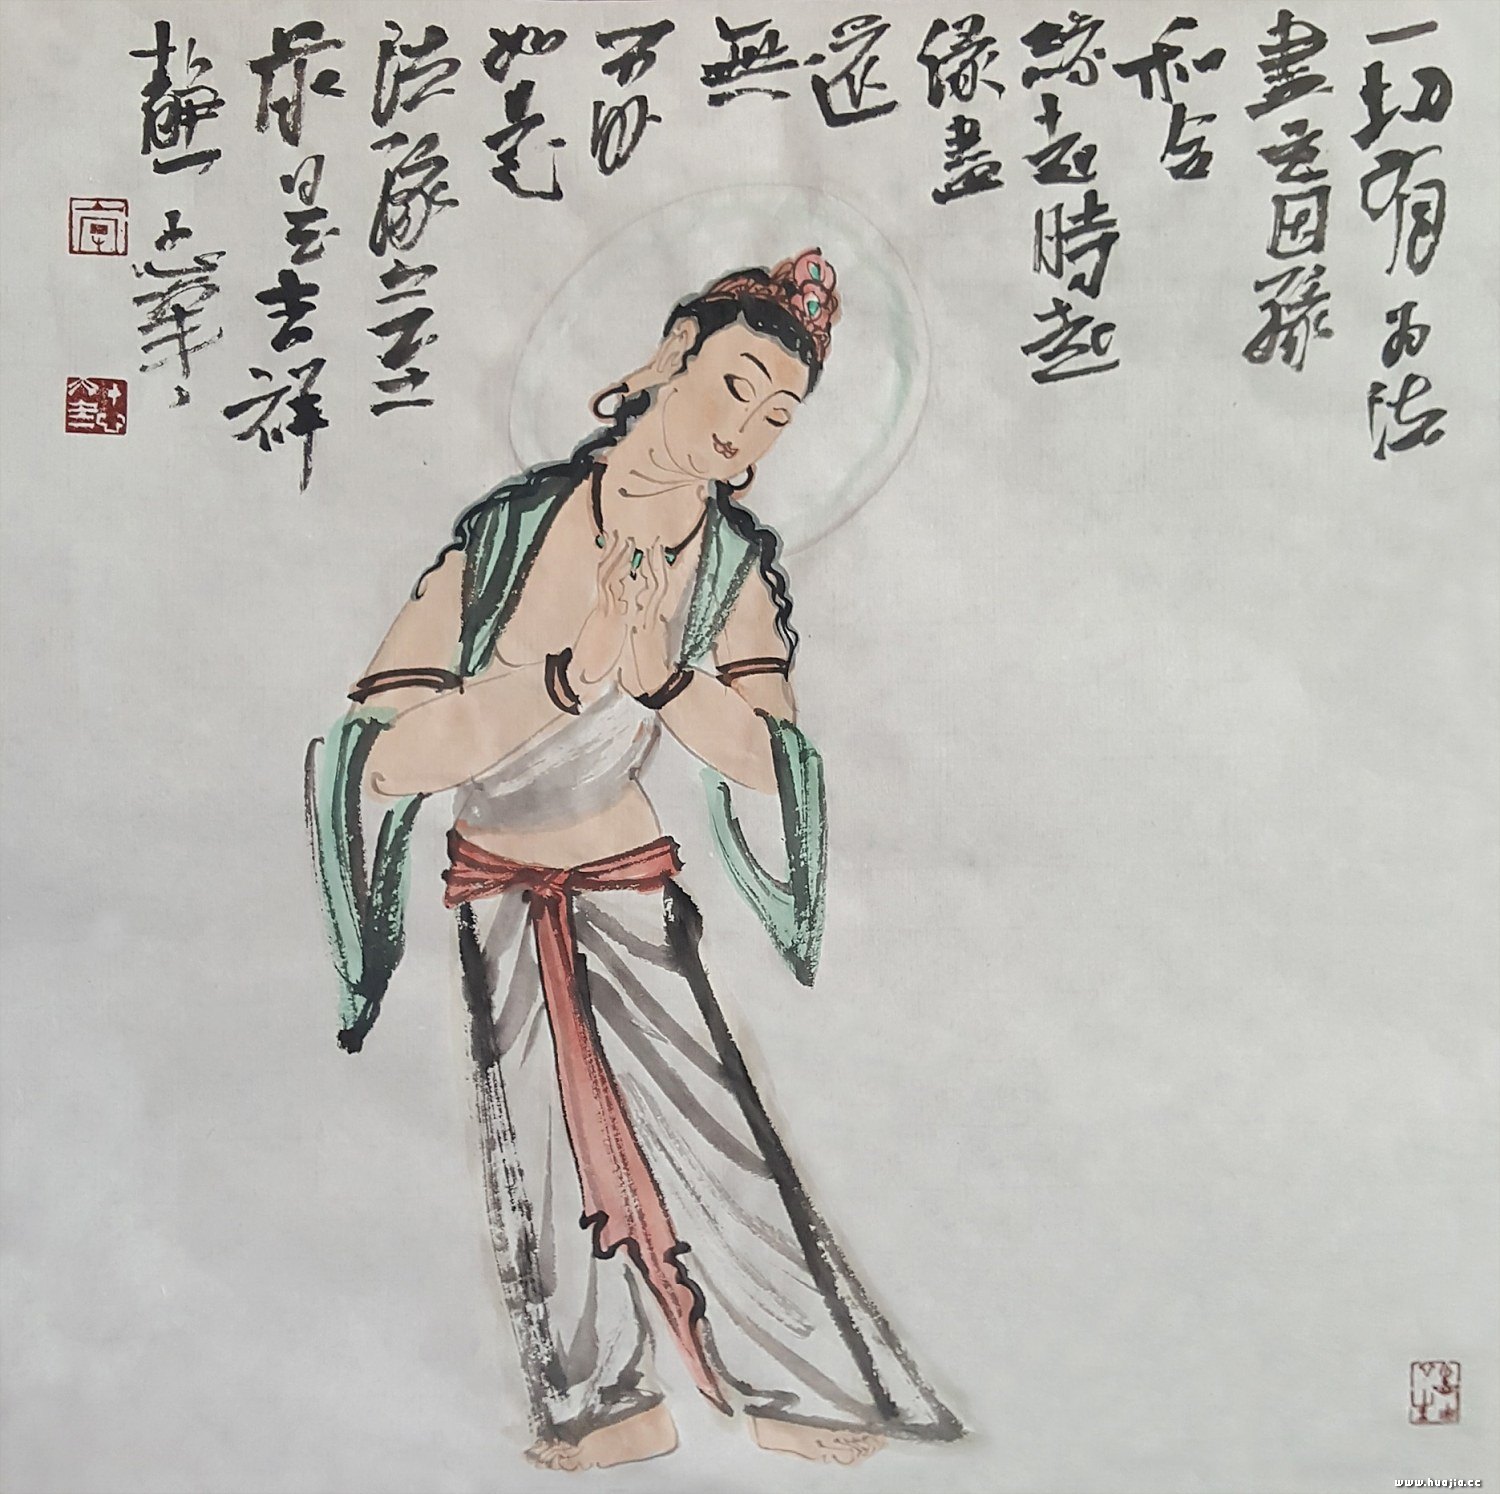 一切有为法
盡是因緣
和合
緣起時起
緣盡
還
無
不外
如是
法緣
最是吉祥
www.huajia.cc